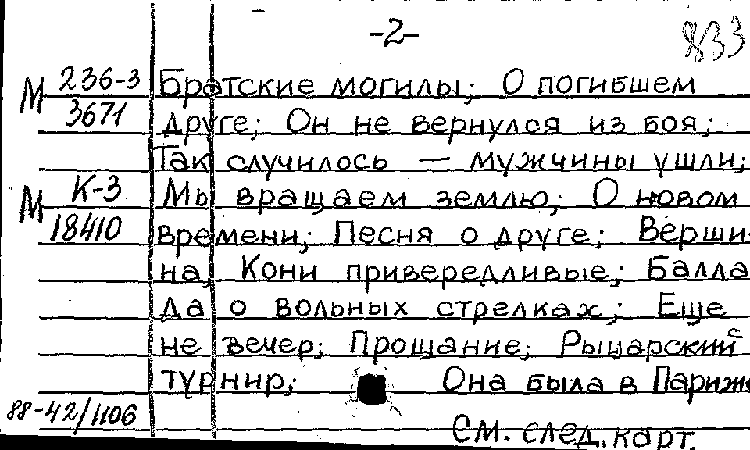 -2-
833
М 236-3 Братские могилы; О погибшем
3671 друге; Он не вернулся из боя;
Так случилось — мужчины ушли;
М К-3 Мы вращаем землю; О новом
18410 времени; Песня о друге; Верши-
на; Кони привередливые; Балла
да о вольных стрелках; Еще
не вечер; Прощание; Рыцарский
турнир; Она была в Париже
88-42/1106
См. след. карт.